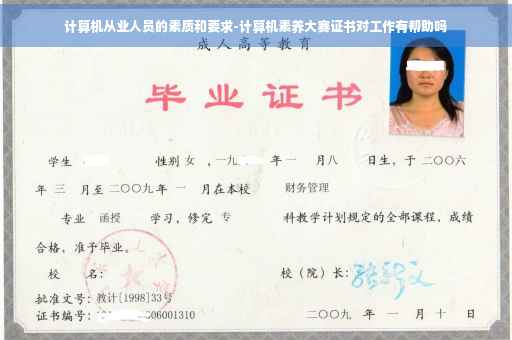 计算机从业人员的素质和要求-计算机素养大赛证书对工作有帮助吗
成人高等教育
毕业证书
学生 性别 女 ，一九 年 一 月 八 日生，于 二〇〇六
年 三 月至 二〇〇九 年 一 月在本校 财务管理
专业 函授 学习，修完 专 科教学计划规定的全部课程，成绩
合格，准予毕业。
校 名： 校（院）长：
批准文号：教计[1998]33号
证书编号： 006001310 二〇〇九 年 一 月 十 日